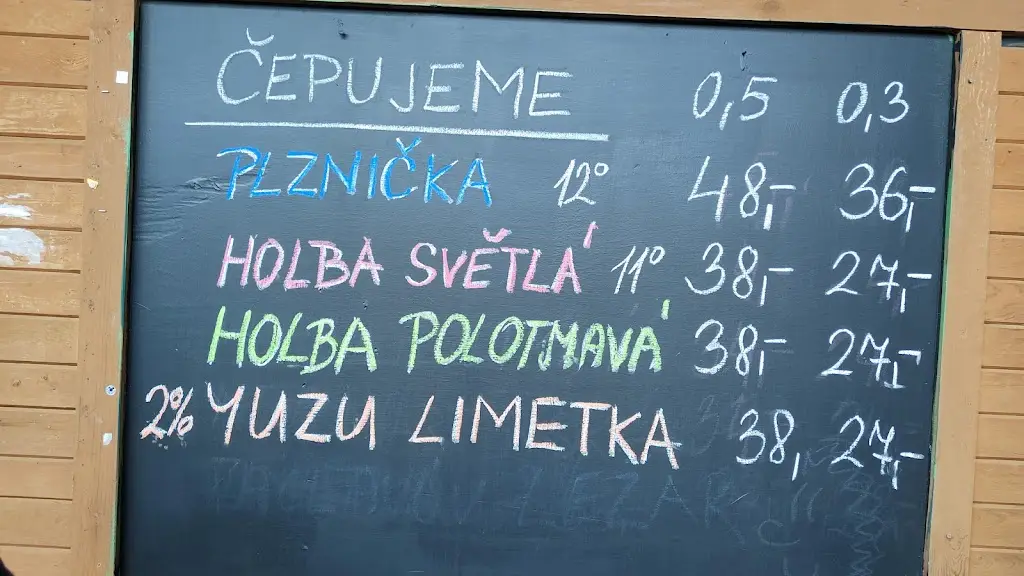 ČEPUJEME 0,5 0,3
PLZNIČKA 12° 48,- 36,-
HOLBA SVĚTLÁ 11° 38,- 27,-
HOLBA POLOTMAVÁ 38,- 27,-
2% YUZU LIMETKA 38, 27,-